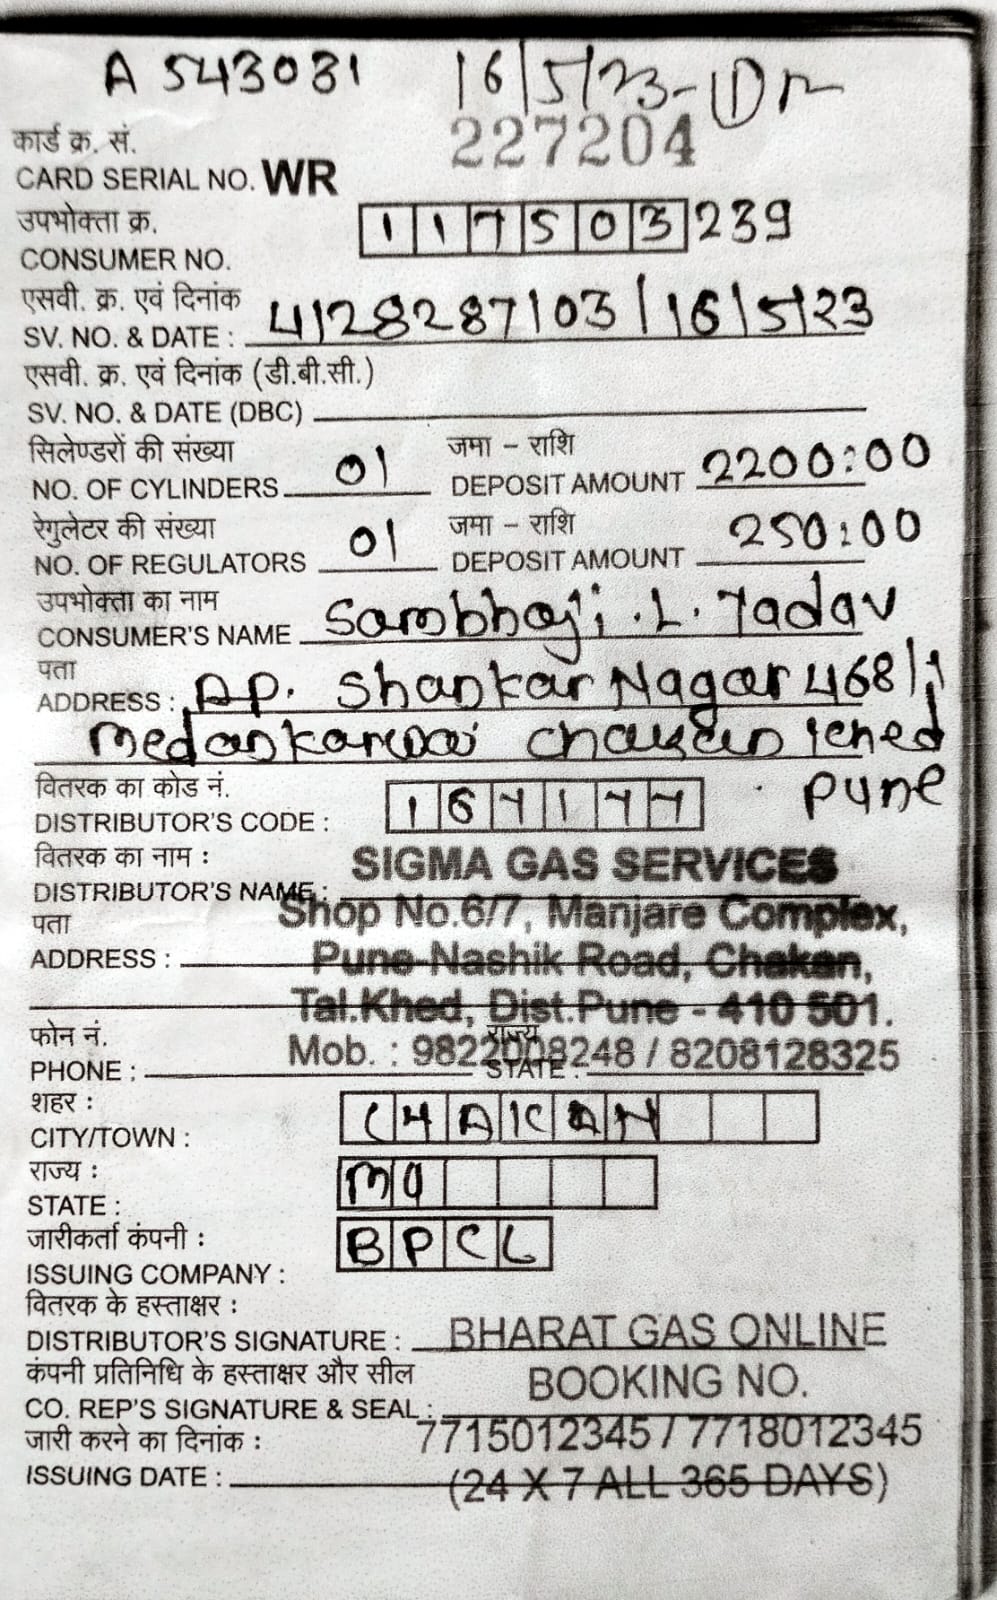 A 543031 16/5/23-
227204
कार्ड क्र. सं.
CARD SERIAL NO. WR
उपभोक्ता क्र.
CONSUMER NO. 117503239
एसवी. क्र. एवं दिनांक
SV. NO. & DATE : 4128287103/16/5/23
एसवी. क्र. एवं दिनांक (डी.बी.सी.)
SV. NO. & DATE (DBC)
सिलेण्डरों की संख्या जमा - राशि
NO. OF CYLINDERS 01 DEPOSIT AMOUNT 2200:00
रेगुलेटर की संख्या जमा - राशि
NO. OF REGULATORS 01 DEPOSIT AMOUNT 250:00
उपभोक्ता का नाम
CONSUMER'S NAME Sambhaji .L. Yadav
पता
ADDRESS : AP. Shankar Nagar 468/1
Medankarwai chakan
Pune
वितरक का कोड नं.
DISTRIBUTOR'S CODE :
वितरक का नाम : SIGMA GAS SERVICES
DISTRIBUTOR'S NAME :
पता Shop No.6/7, Manjare Complex,
ADDRESS : Pune-Nashik Road, Chakan,
Tal.Khed, Dist.Pune - 410 501.
फोन नं. राज्य
PHONE : STATE : Mob. : 9822008248 / 8208128325
शहर :
CITY/TOWN : CHAKAN
राज्य :
STATE :
जारीकर्ता कंपनी :
ISSUING COMPANY : BPCL
वितरक के हस्ताक्षर :
DISTRIBUTOR'S SIGNATURE : BHARAT GAS ONLINE
कंपनी प्रतिनिधि के हस्ताक्षर और सील BOOKING NO.
CO. REP'S SIGNATURE & SEAL :
जारी करने का दिनांक : 7715012345 / 7718012345
ISSUING DATE : (24 X 7 ALL 365 DAYS)